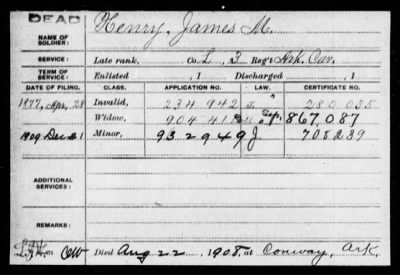 DEAD
NAME OF SOLDIER: Henry, James M.
SERVICE: Late rank, Co. L, 3 Reg't Ark. Cav.
TERM OF SERVICE: Enlisted , 1 Discharged , 1
DATE OF FILING. CLASS. APPLICATION NO. LAW. CERTIFICATE NO.
1877, Apr, 28 Invalid, 234 942 280 035
Widow, 904 867,087
1909 Dec 1 Minor, 932949 J 705239
ADDITIONAL SERVICES:
REMARKS:
Died Aug 22, 1908, at Conway, Ark.